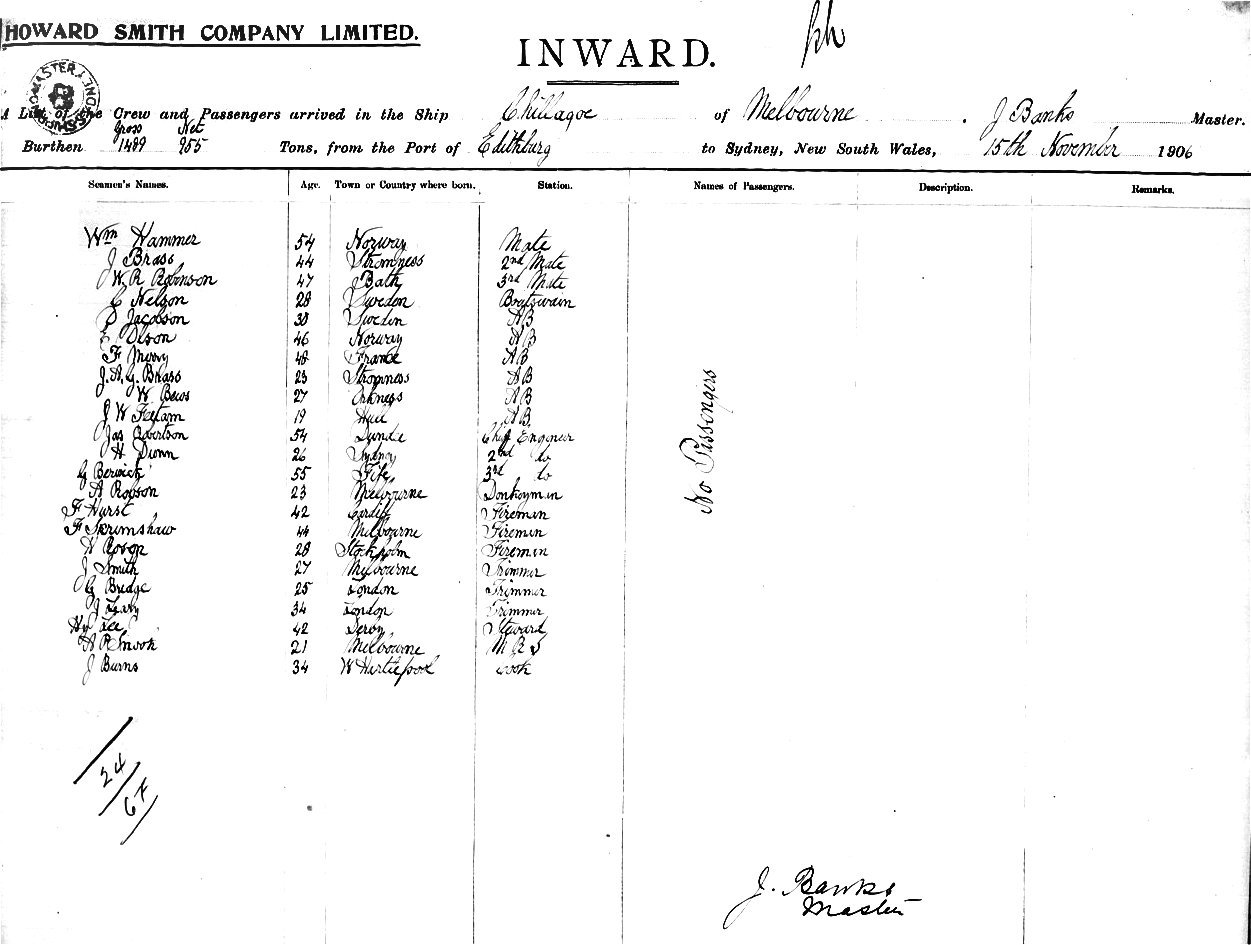 HOWARD SMITH COMPANY LIMITED.
INWARD.
A List of the Crew and Passengers arrived in the Ship Chillagoe of Melbourne . J Banks Master.
Gross Net
Burthen 1489 955 Tons, from the Port of Edithburg to Sydney, New South Wales, 15th November 1906
Seamen's Names. Age. Town or Country where born. Station. Names of Passengers. Description. Remarks.
Wm Hammer 54 Norway Mate
J Brass 44 Stromness 2nd Mate
W. R Robinson 47 Bath 3rd Mate
Nelson 28 Sweden Boatswain
Jacobson 38 Sweden AB
E Olson 46 Norway AB
F 48 France AB
J. A. G. Brass 23 Stromness AB
W Bews 27 AB
J W 19 Hull AB
Jas Robertson 54 Dundee Chief Engineer
H Dunn 26 Sydney 2nd do
G Berwick 55 Fife 3rd do
A Robson 23 Melbourne Donkeyman
F Hurst 42 Cardiff Fireman
F Scrimshaw 44 Melbourne Fireman
H 28 Stockholm Fireman
J Smith 27 Melbourne Trimmer
G Bridge 25 London Trimmer
J Leary 34 London Trimmer
Hy Lee 42 Derby Steward
A R Snook 21 Melbourne M R S
J Burns 34 W Hartlepool Cook
No Passengers
24
J. Banks
Master